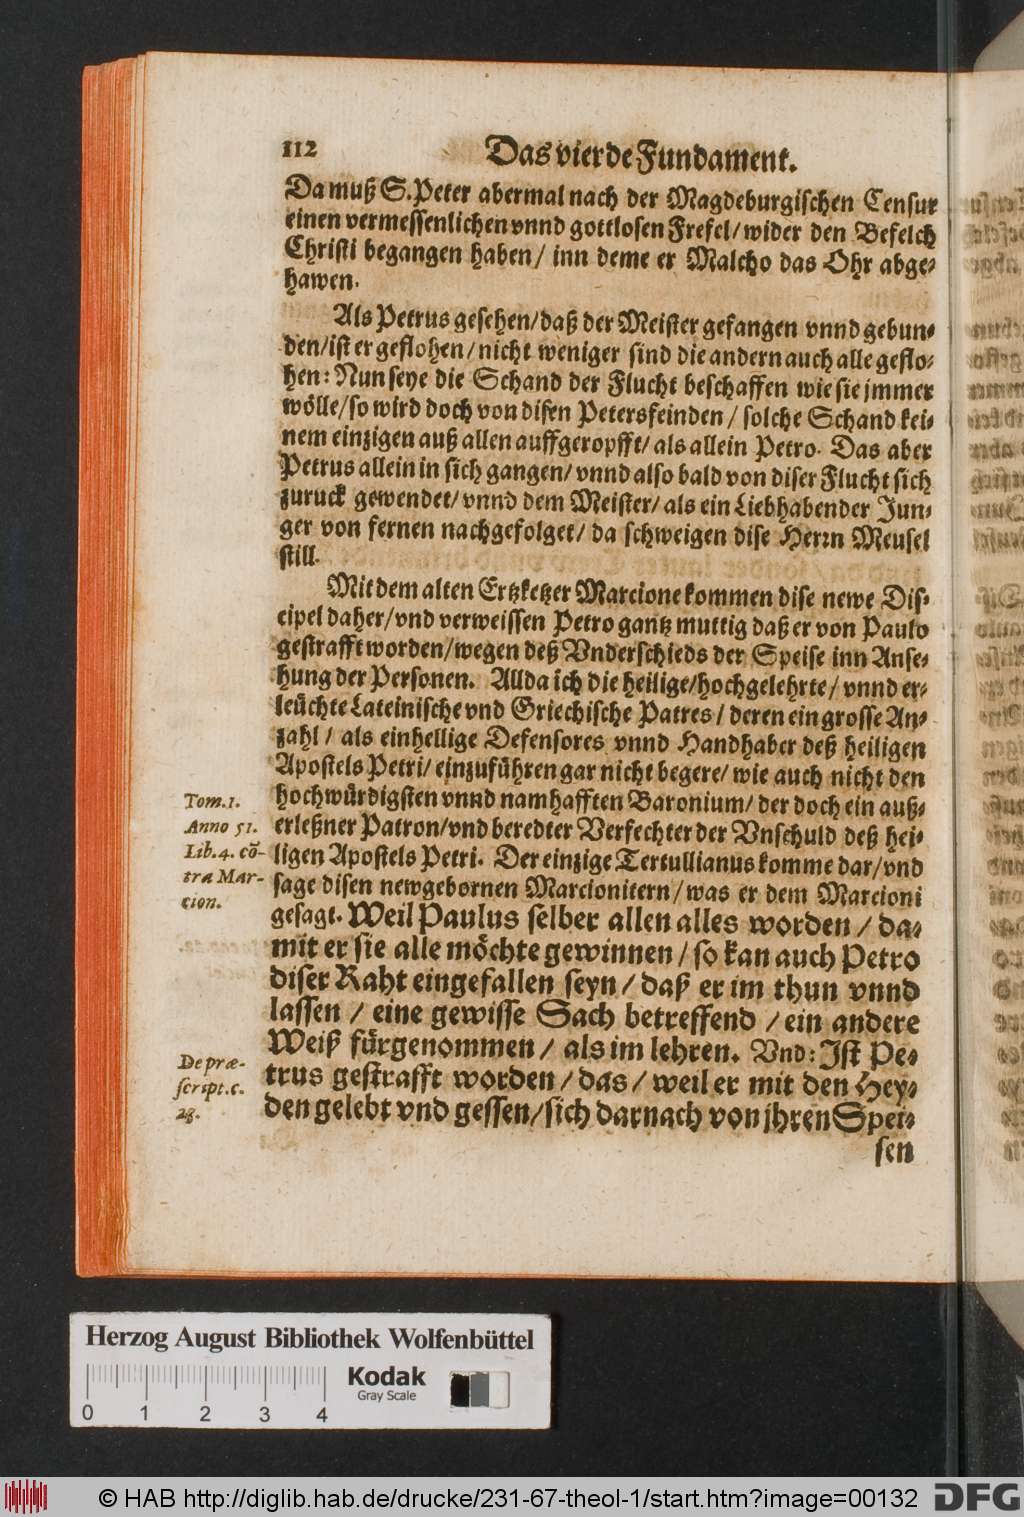 112
Das vierde Fundament.
Da muß S. Peter abermal nach der Magdeburgischen Censur
einen vermessenlichen vnnd gottlosen Frefel/ wider den Befelch
Christi begangen haben/ inn deme er Malcho das Ohr abge-
hawen.
Als Petrus gesehen/ daß der Meister gefangen vnnd gebun-
den/ ist er geflohen/ nicht weniger sind die andern auch alle geflo-
hen: Nun seye die Schand der Flucht beschaffen wie sie jmmer
wölle/ so wird doch von disen Petersfeinden/ solche Schand kei-
nem einzigen auß allen auffgeropfft/ als allein Petro. Das aber
Petrus allein in sich gangen/ vnnd also bald von diser Flucht sich
zuruck gewendet/ vnnd dem Meister/ als ein Liebhabender Jun-
ger von fernen nachgefolget/ da schweigen dise Herrn Meusel
still.
Mit dem alten Ertzketzer Marcione kommen dise newe Dis-
cipel daher/ vnd verweissen Petro gantz muttig daß er von Paulo
gestrafft worden/ wegen deß Vnderschieds der Speise inn Anse-
hung der Personen. Allda ich die heilige/ hochgelehrte/ vnnd er-
leüchte Lateinische vnd Griechische Patres/ deren ein grosse An-
zahl/ als einhellige Defensores vnnd Handhaber deß heiligen
Apostels Petri/ einzuführen gar nicht begere/ wie auch nicht den
hochwürdigsten vnnd namhafften Baronium/ der doch ein auß-
erleßner Patron/ vnd beredter Verfechter der Vnschuld deß hei-
ligen Apostels Petri. Der einzige Tertullianus komme dar/ vnd
sage disen newgebornen Marcionitern/ was er dem Marcioni
gesagt. Weil Paulus selber allen alles worden/ da-
mit er sie alle möchte gewinnen/ so kan auch Petro
diser Raht eingefallen seyn/ daß er im thun vnnd
lassen/ eine gewisse Sach betreffend/ ein andere
Weiß fürgenommen/ als im lehren. Vnd: Ist Pe-
trus gestrafft worden/ das/ weil er mit den Hey-
den gelebt vnd gessen/ sich darnach von jhren Spei-
sen
Tom. 1.
Anno 51.
Lib. 4. cō-
tra Mar-
cion.
De præ-
script. c.
28.
Herzog August Bibliothek Wolfenbüttel
Kodak
Gray Scale
0 1 2 3 4
© HAB http://diglib.hab.de/drucke/231-67-theol-1/start.htm?image=00132
DFG